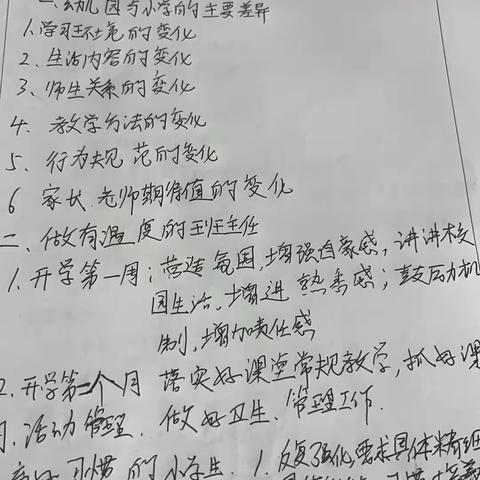 一、幼儿园与小学的主要差异
1.学习环境的变化
2.生活内容的变化
3、师生关系的变化
4.教学方法的变化
5、行为规范的变化
6 家长.老师期待值的变化
二、做有温度的班主任
1.开学第一周:营造氛围,增强自豪感,讲讲校
园生活,增进熟悉感;鼓励机
制,增加责任感
2.开学第一个月 落实好课堂常规教学,抓好课
间.活动管理.做好卫生、管理工作.
习惯的小学生.1.反复强化,要求具体精细